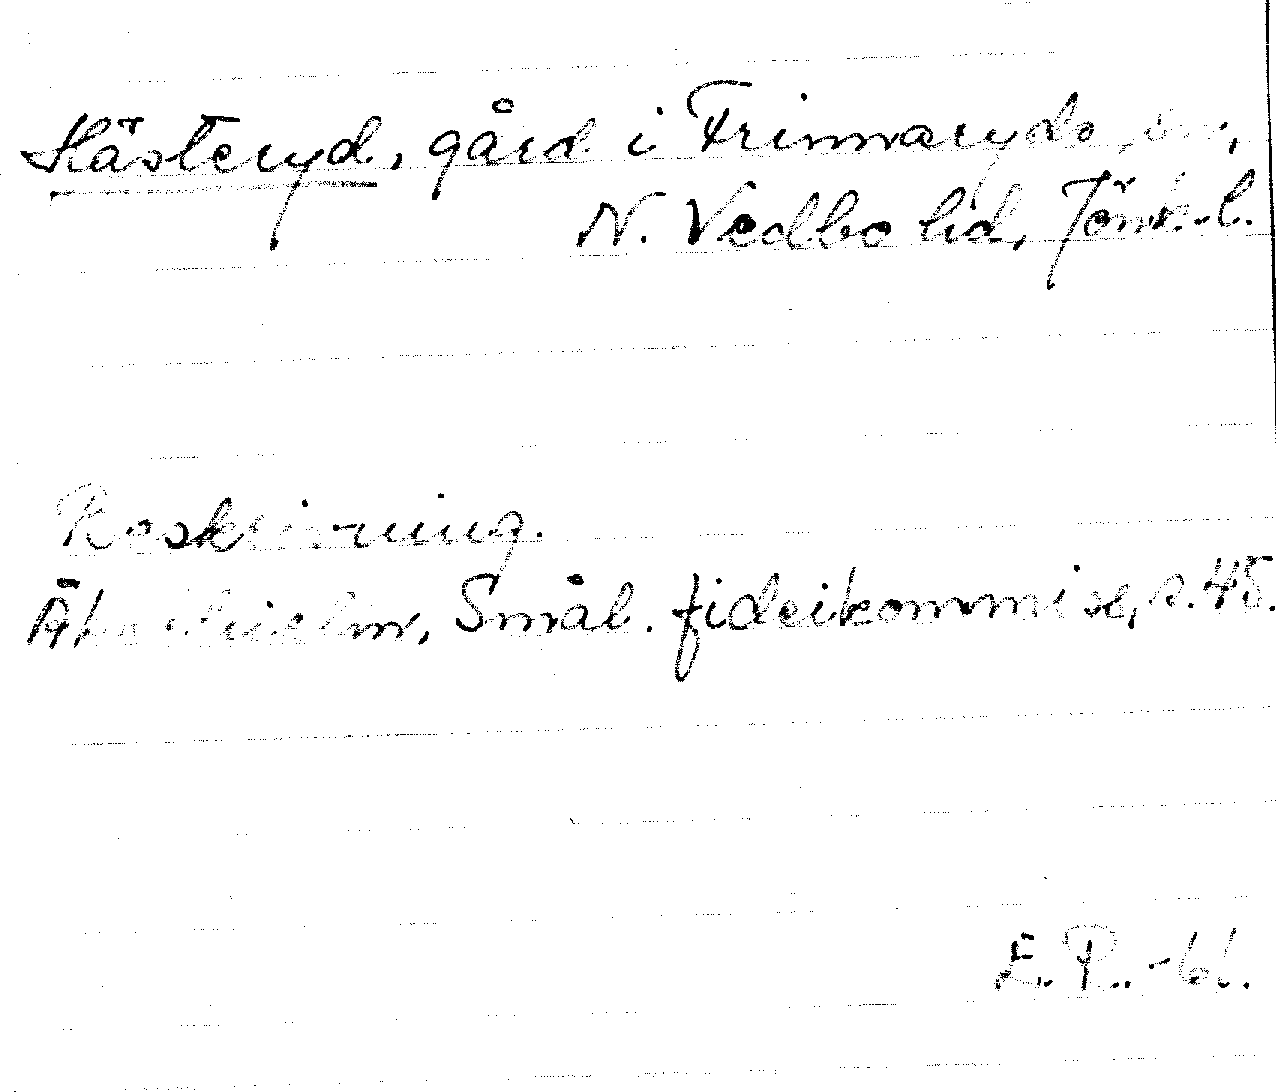 Hästeryd, gård i Frinnaryds sn,
N. Vedbo hd, Jönk. l.
Beskrivning.
Smål. fideikommiss, s. 45.
E. P. -61.